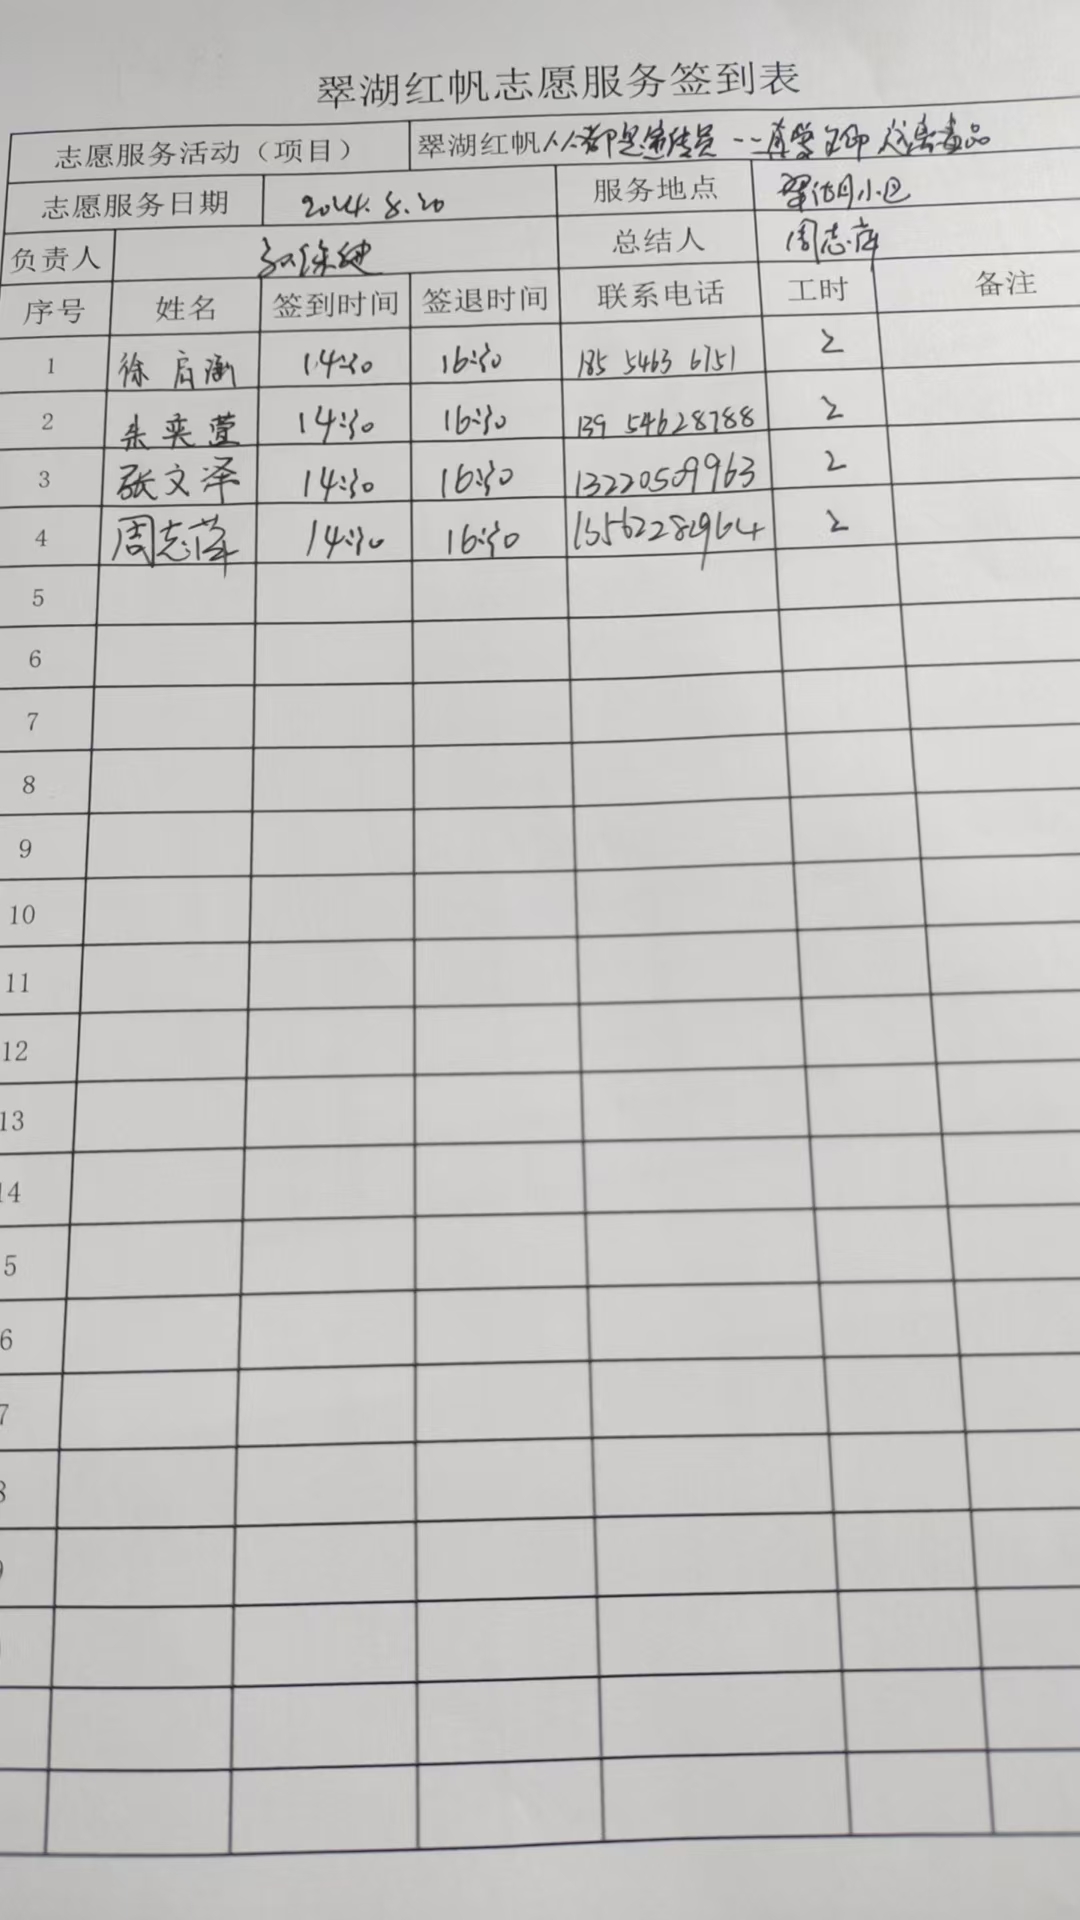 翠湖红帆志愿服务签到表
志愿服务活动（项目） 翠湖红帆人人都是宣传员 品
志愿服务日期 2024.8.20 服务地点 翠湖月小区
负责人 总结人 周志萍
序号 姓名 签到时间 签退时间 联系电话 工时 备注
1 徐启涵 14:30 16:30 185 5463 6751 2
2 朱奕萱 14:30 16:30 139 54628788 2
3 张文泽 14:30 16:30 13220509963 2
4 周志萍 14:30 16:30 2
5
6
7
8
9
10
11
12
13
14
5
6
7
8
9